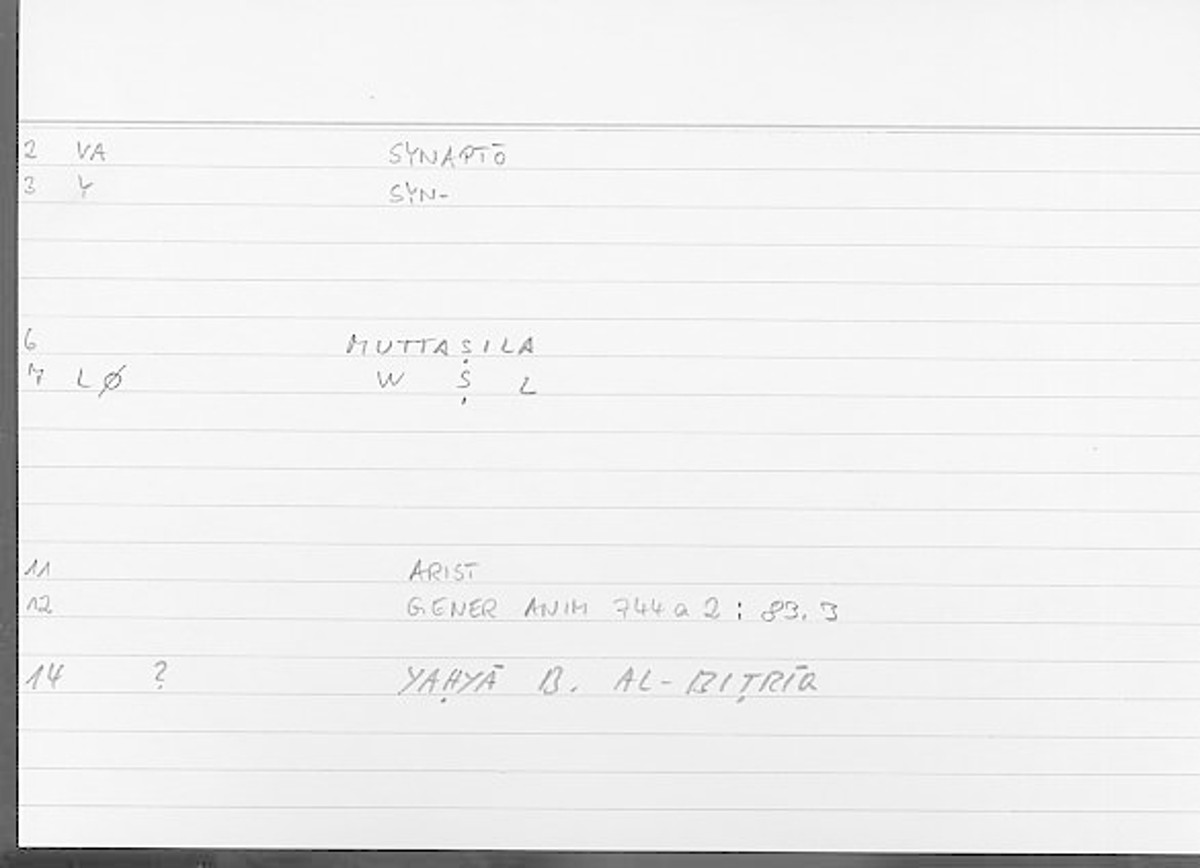 2 VA SYNAPTŌ
3 Y SYN-
6 MUTTAṢILA
7 LØ W Ṣ L
11 ARIST
12 GENER ANIM 744a2 : 83.3
14 ? YAḤYĀ B. AL-BIṬRĪQ